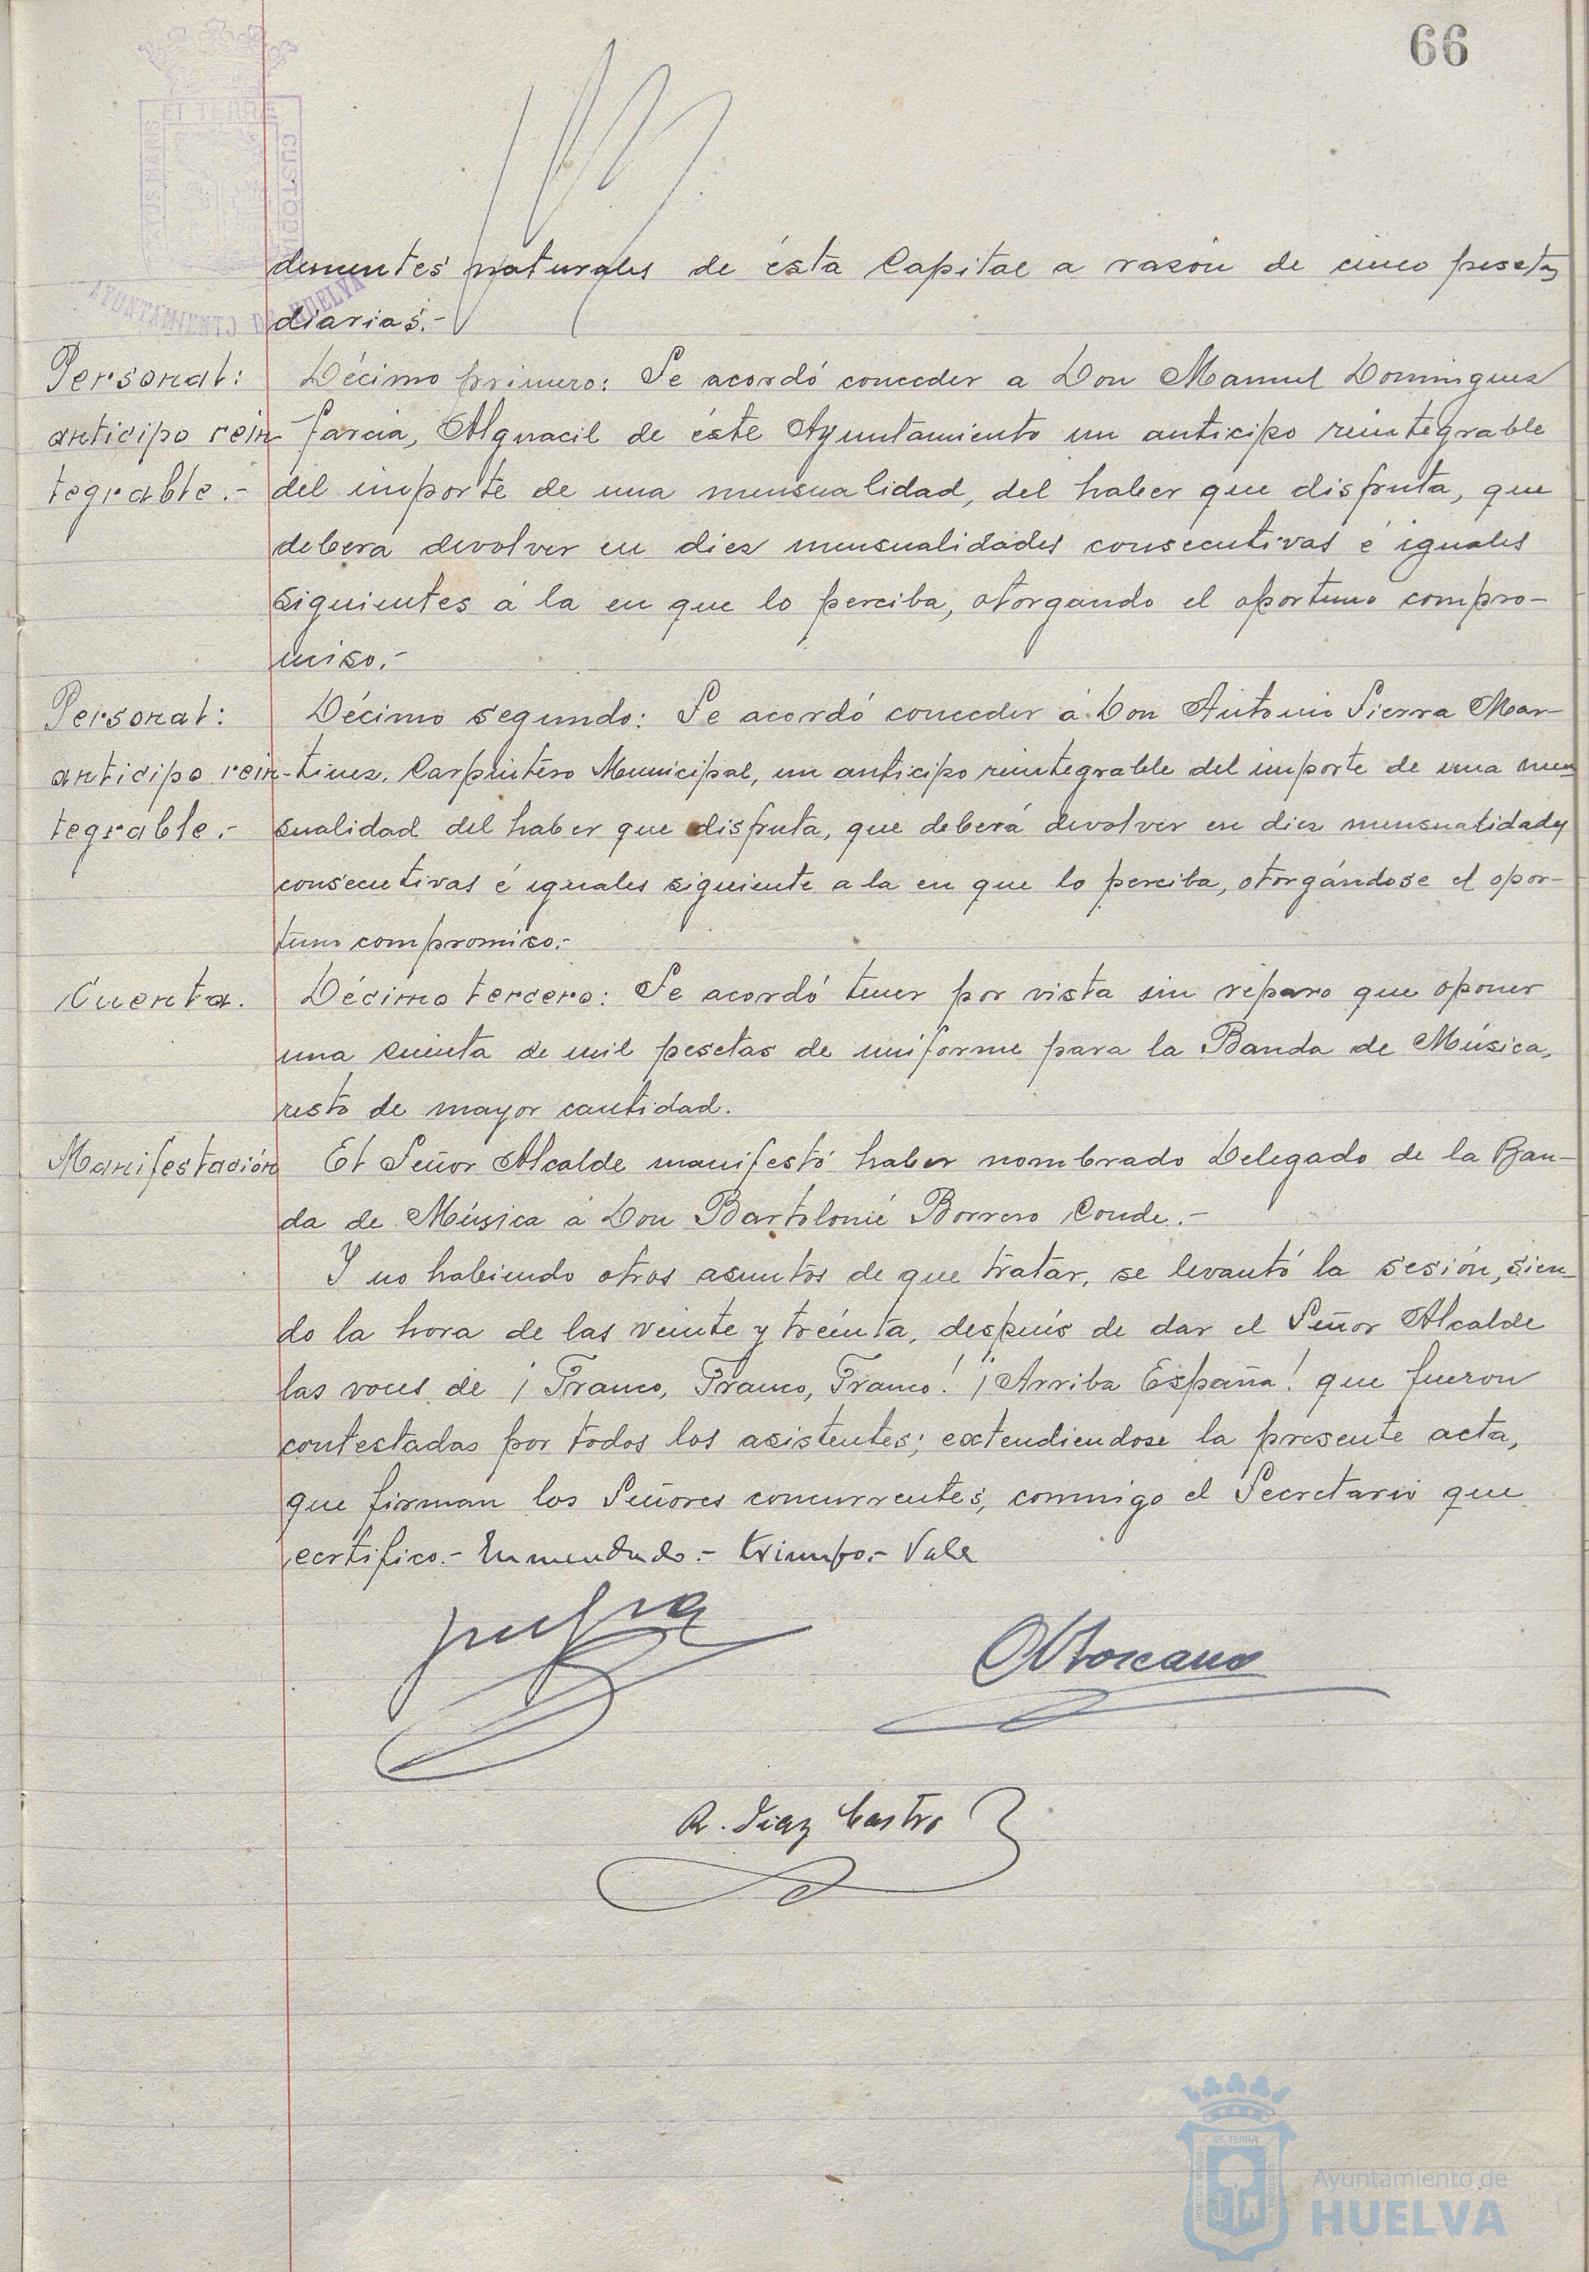 66
ET TERRE
CUSTODIA
AYUNTAMIENTO DE HUELVA
dementes naturales de ésta Capital a razón de cinco pesetas
diarias.-
Personal: Décimo primero: Se acordó conceder a Don Manuel Dominguez
anticipo rein Garcia, Alguacil de éste Ayuntamiento un anticipo reintegrable
tegrable.- del importe de una mensualidad, del haber que disfruta, que
deberá devolver en diez mensualidades consecutivas é iguales
siguientes á la en que lo perciba, otorgando el oportuno compro-
miso.-
Personal: Décimo segundo: Se acordó conceder á Don Antonio Sierra Mar-
anticipo rein- tinez, Carpintero Municipal, un anticipo reintegrable del importe de una men
tegrable.- sualidad del haber que disfruta, que deberá devolver en diez mensualidades
consecutivas é iguales siguiente a la en que lo perciba, otorgándose el opor-
tuno compromiso.-
Cuenta. Décimo tercero: Se acordó tener por vista sin reparo que oponer
una cuenta de mil pesetas de uniforme para la Banda de Música,
resto de mayor cantidad.
Manifestación El Señor Alcalde manifestó haber nombrado Delegado de la Ban-
da de Música á Don Bartolomé Borrero Conde.-
Y no habiendo otros asuntos de que tratar, se levantó la sesión, sien-
do la hora de las veinte y treinta, después de dar el Señor Alcalde
las voces de ¡Franco, Franco, Franco! ¡Arriba España! que fueron
contestadas por todos los asistentes; extendiendose la presente acta,
que firman los Señores concurrentes, conmigo el Secretario que
certifico.- Enmendado.- triunfo.- Vale
Toscano
R. Diaz Castro
Ayuntamiento de
HUELVA